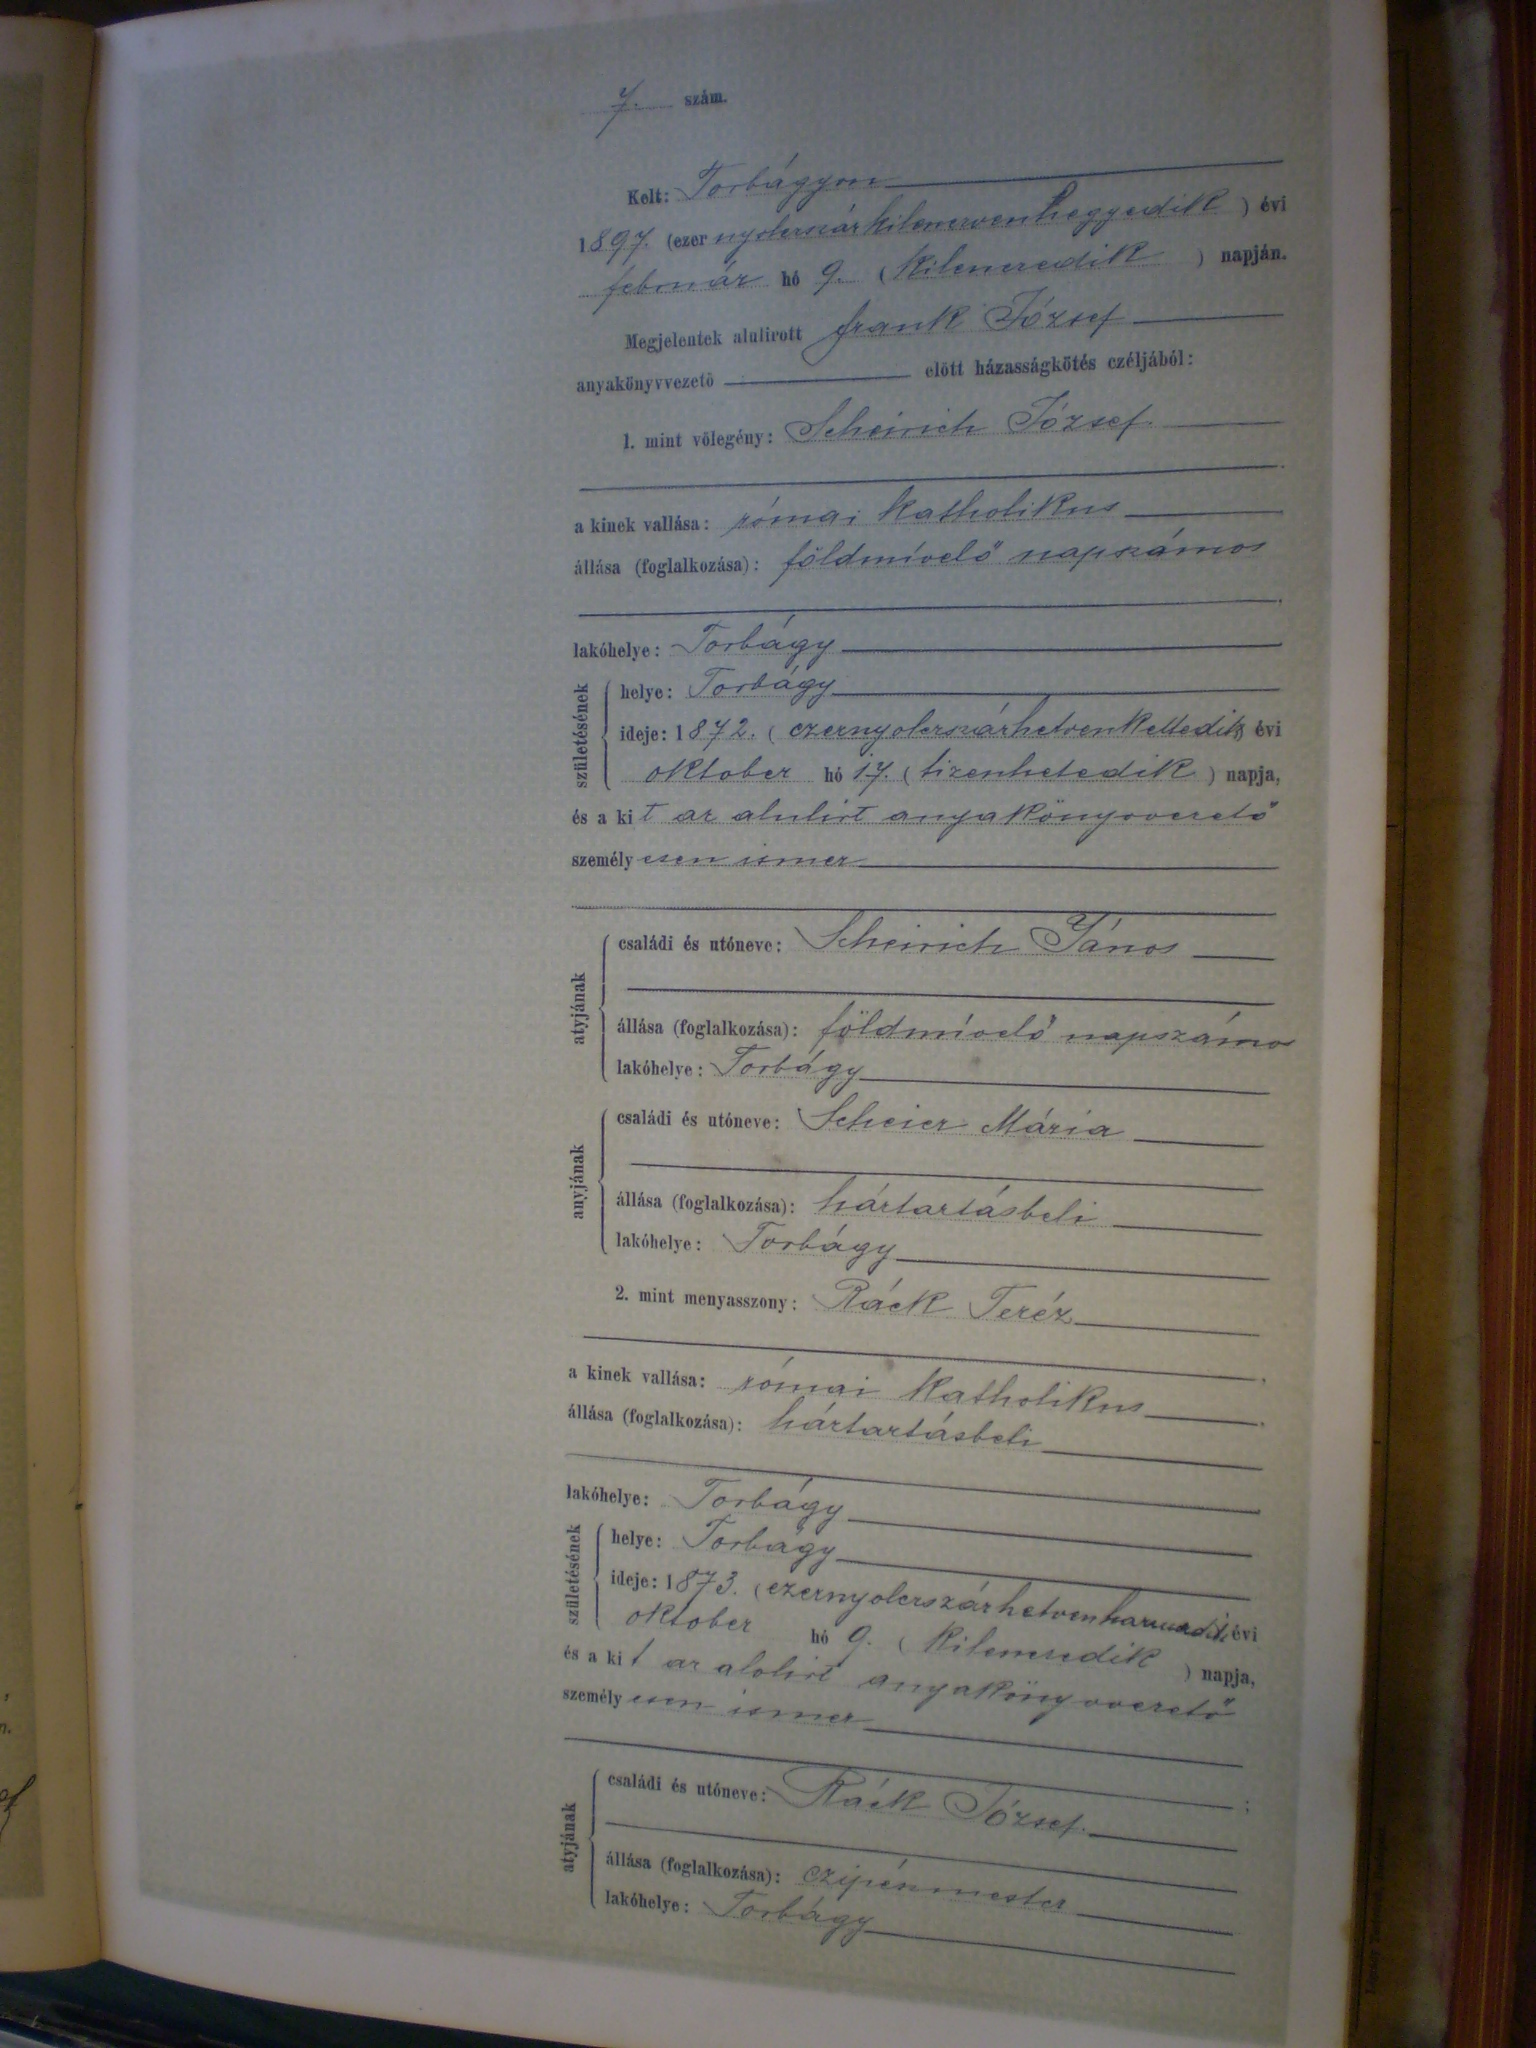 7. szám.
Kelt: Torbágyon
1897. (ezer nyolczszázkilenczvenhegyedik) évi
február hó 9. (kilenczedik) napján.
Megjelentek alulirott Frank József
anyakönyvvezető előtt házasságkötés czéljából:
1. mint vőlegény: Scheirich József
a kinek vallása: római katholikus
állása (foglalkozása): földmívelő napszámos
lakóhelye: Torbágy
születésének
helye: Torbágy
ideje: 1872. (ezernyolczszázhetvenkettedik) évi
oktober hó 17. (tizenhetedik) napja,
és a kit az alulirt anyakönyvvezető
személyesen ismer
atyjának
családi és utóneve: Scheirich János
állása (foglalkozása): földmívelő napszámos
lakóhelye: Torbágy
anyjának
családi és utóneve: Scheier Mária
állása (foglalkozása): háztartásbeli
lakóhelye: Torbágy
2. mint menyasszony: Ráck Teréz
a kinek vallása: római katholikus
állása (foglalkozása): háztartásbeli
lakóhelye: Torbágy
születésének
helye: Torbágy
ideje: 1873. (ezernyolczszázhetvenharmadik évi
oktober hó 9. (kilenczedik) napja,
és a kit az alolirt anyakönyvvezető
személyesen ismer
;
atyjának
családi és utóneve: Ráck József
állása (foglalkozása): czipészmester
lakóhelye: Torbágy